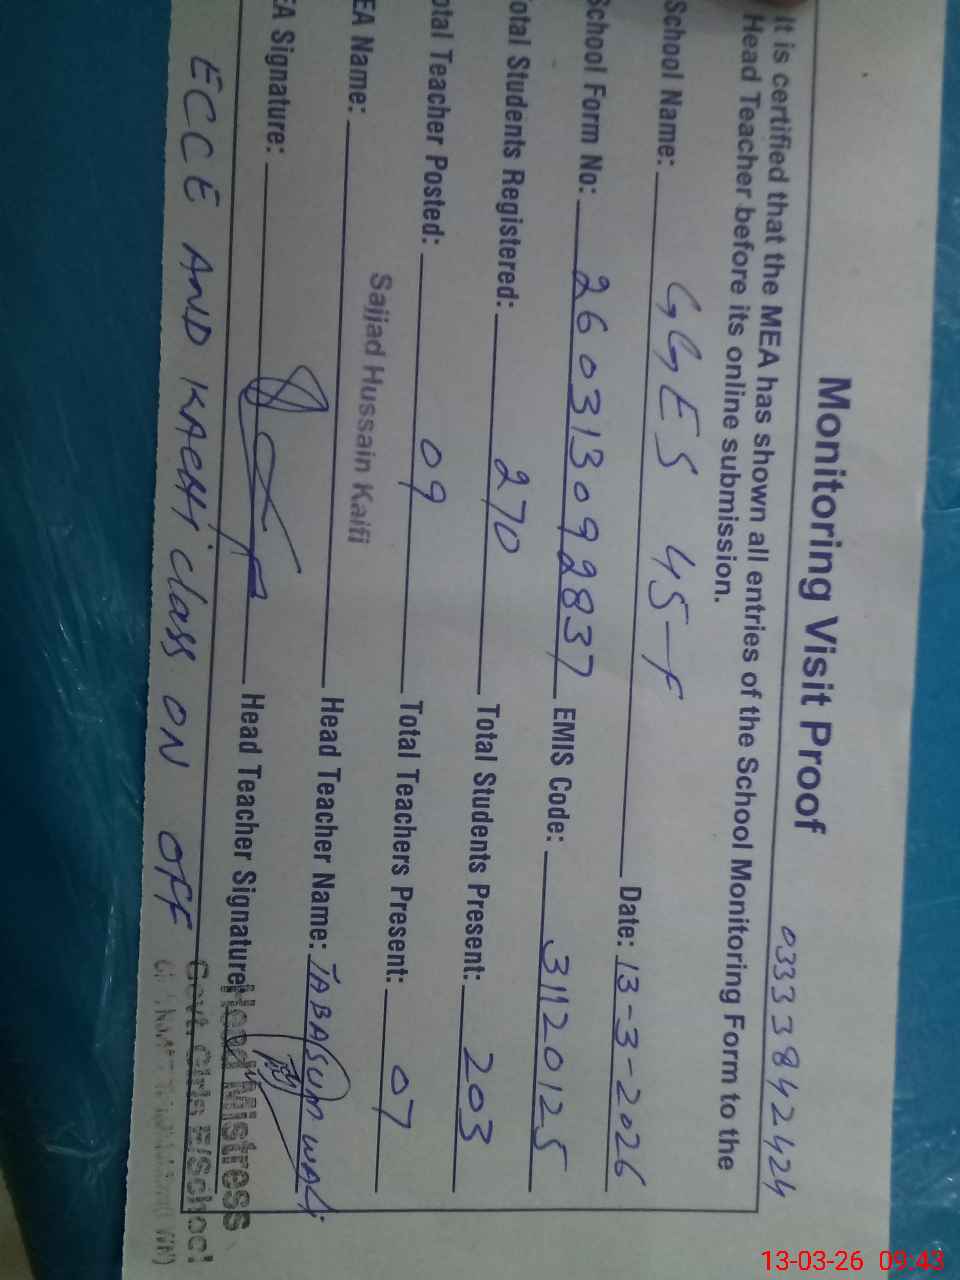 Monitoring Visit Proof
03333842424
It is certified that the MEA has shown all entries of the School Monitoring Form to the
Head Teacher before its online submission.
School Name: GGES 45-F Date: 13-3-2026
School Form No: 260313092837 EMIS Code: 31120125
otal Students Registered: 270 Total Students Present: 203
otal Teacher Posted: 09 Total Teachers Present: 07
EA Name: Sajjad Hussain Kaifi Head Teacher Name: TABASUM WALI
EA Signature: Head Teacher Signature
Head Mistress
Govt. Girls E/School
ECCE AND KACHI class ON OFF
13-03-26 09:43